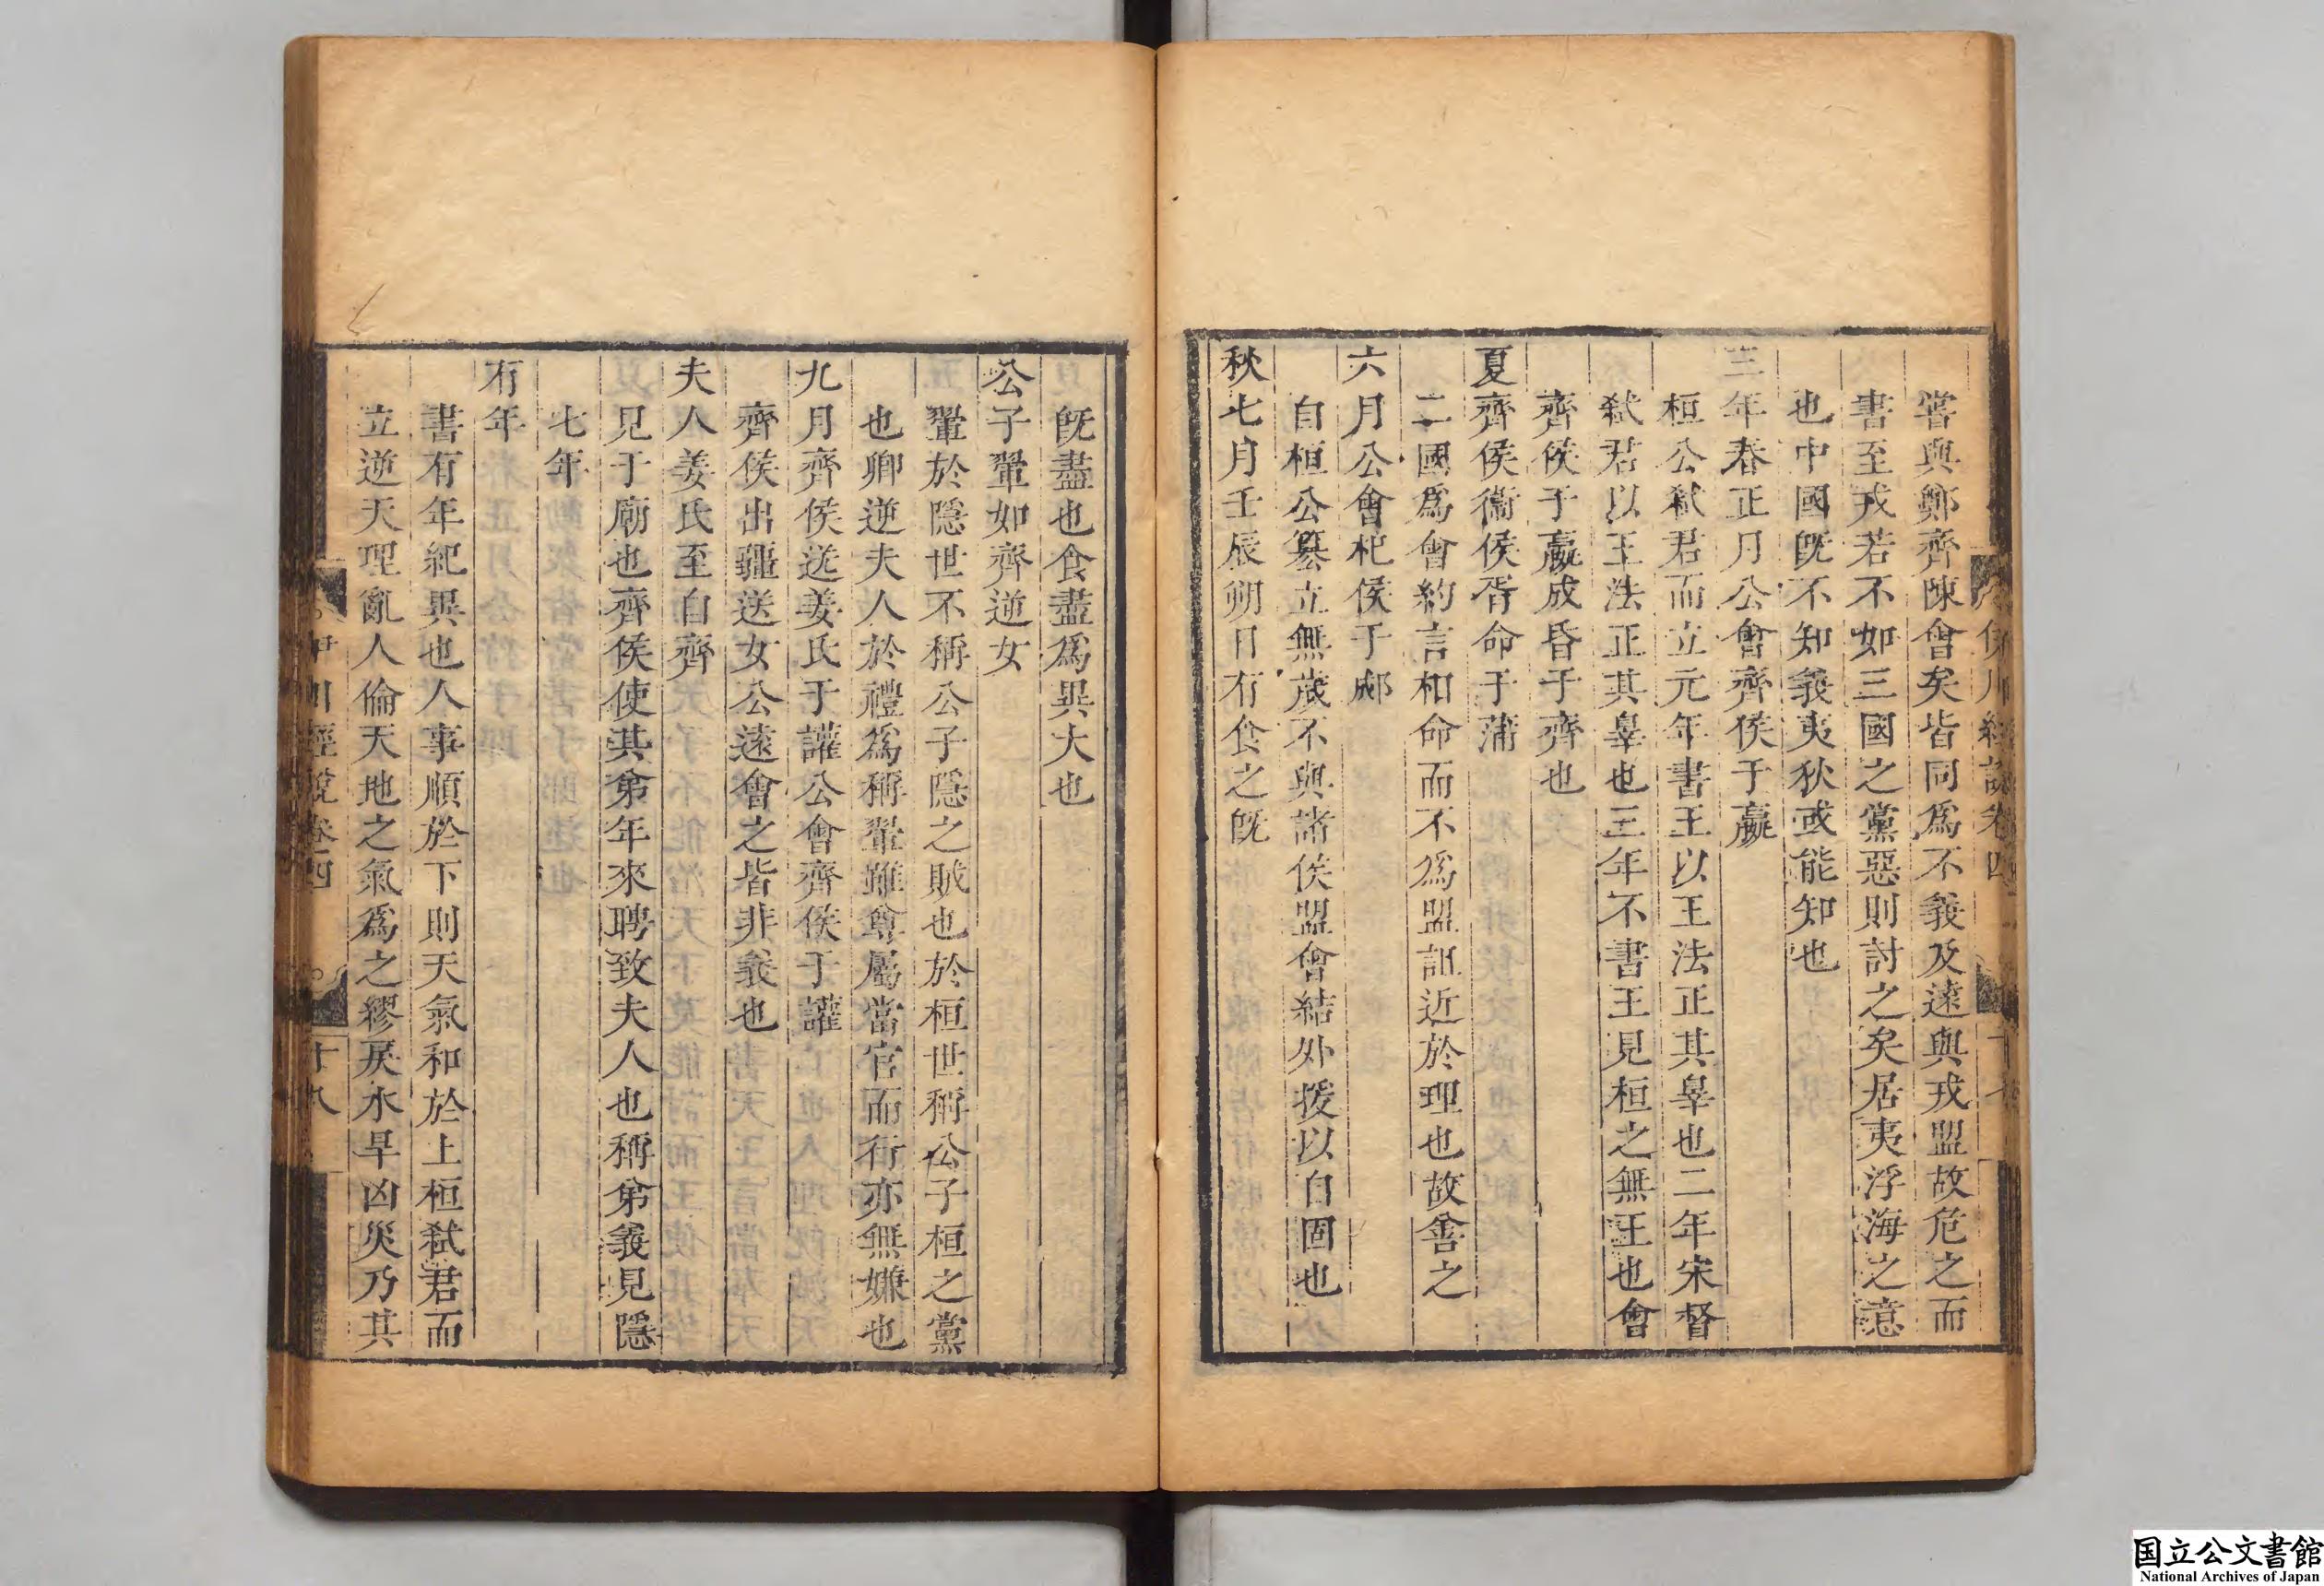 伊川經說卷四
十七
嘗與鄭齊陳會矣皆同爲不義及遠與戎盟故危之而
書至戎若不如三國之黨惡則討之矣居夷浮海之意
也中國旣不知義夷狄或能知也
三年春正月公會齊侯于嬴
桓公弑君而立元年書王以王法正其辠也二年宋督
弑君以王法正其辠也三年不書王見桓之無王也會
齊侯于嬴成昏于齊也
夏齊侯衞侯胥命于蒲
二國爲會約言相命而不爲盟詛近於理也故善之
六月公會杞侯于郕
自桓公簒立無歲不與諸侯盟會結外援以自固也
秋七月壬辰朔日有食之旣
旣盡也食盡爲異大也
公子翬如齊逆女
翬於隱世不稱公子隱之賊也於桓世稱公子桓之黨
也卿逆夫人於禮爲稱翬雖尊屬當官而行亦無嫌也
九月齊侯送姜氏于讙公會齊侯于讙
齊侯出疆送女公遠會之皆非義也
夫人姜氏至自齊
見于廟也齊侯使其弟年來聘致夫人也稱弟義見隱
七年
有年
書有年紀異也人事順於下則天氣和於上桓弑君而
立逆天理亂人倫天地之氣爲之繆戾水旱凶災乃其
伊川經說卷四
十八
国立公文書館
National Archives of Japan